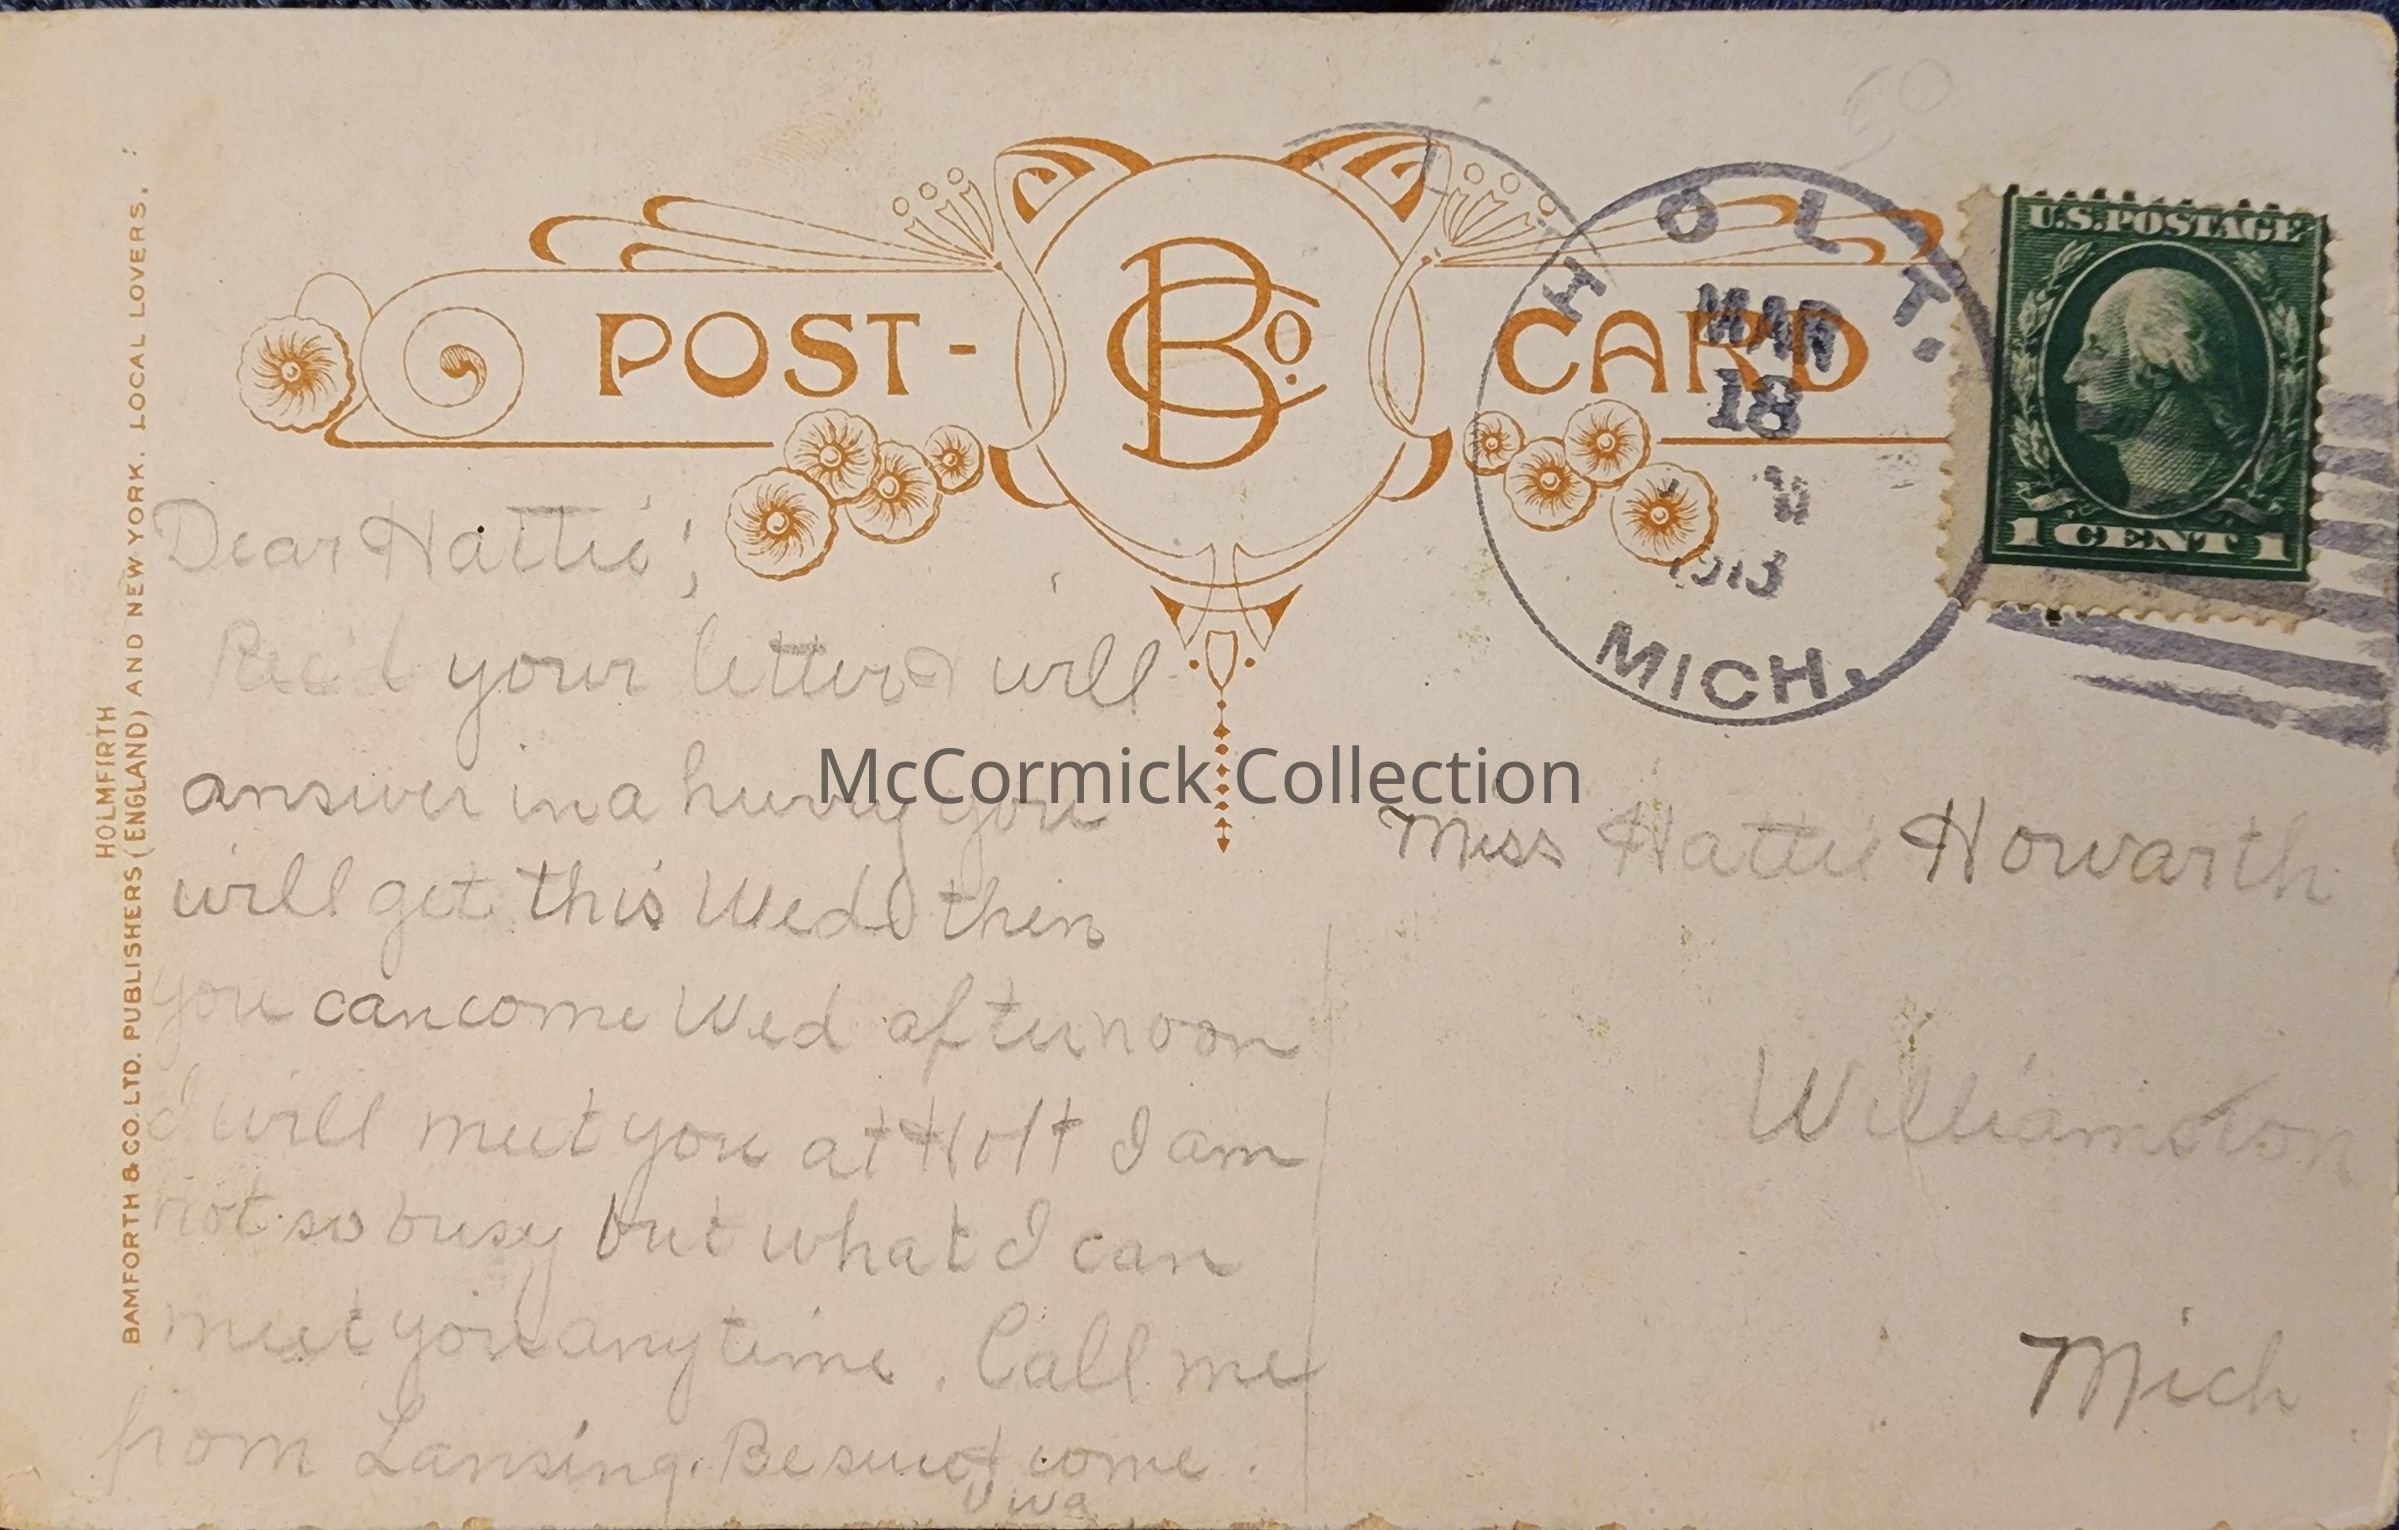 POST-CARD
BCo.
HOLT.
MAR
18
1913
MICH.
U.S. POSTAGE
1 CENT 1
HOLMFIRTH
BAMFORTH & CO. LTD. PUBLISHERS (ENGLAND) AND NEW YORK. LOCAL LOVERS.
Dear Hattie;
Rec'd your letter & will
answer in a hurry you
will get this Wed then
you can come Wed afternoon
I will meet you at Holt I am
not so busy but what I can
meet you anytime. Call me
from Lansing. Be sure & come.
Miss Hattie Howarth
Williamston
Mich
McCormick Collection